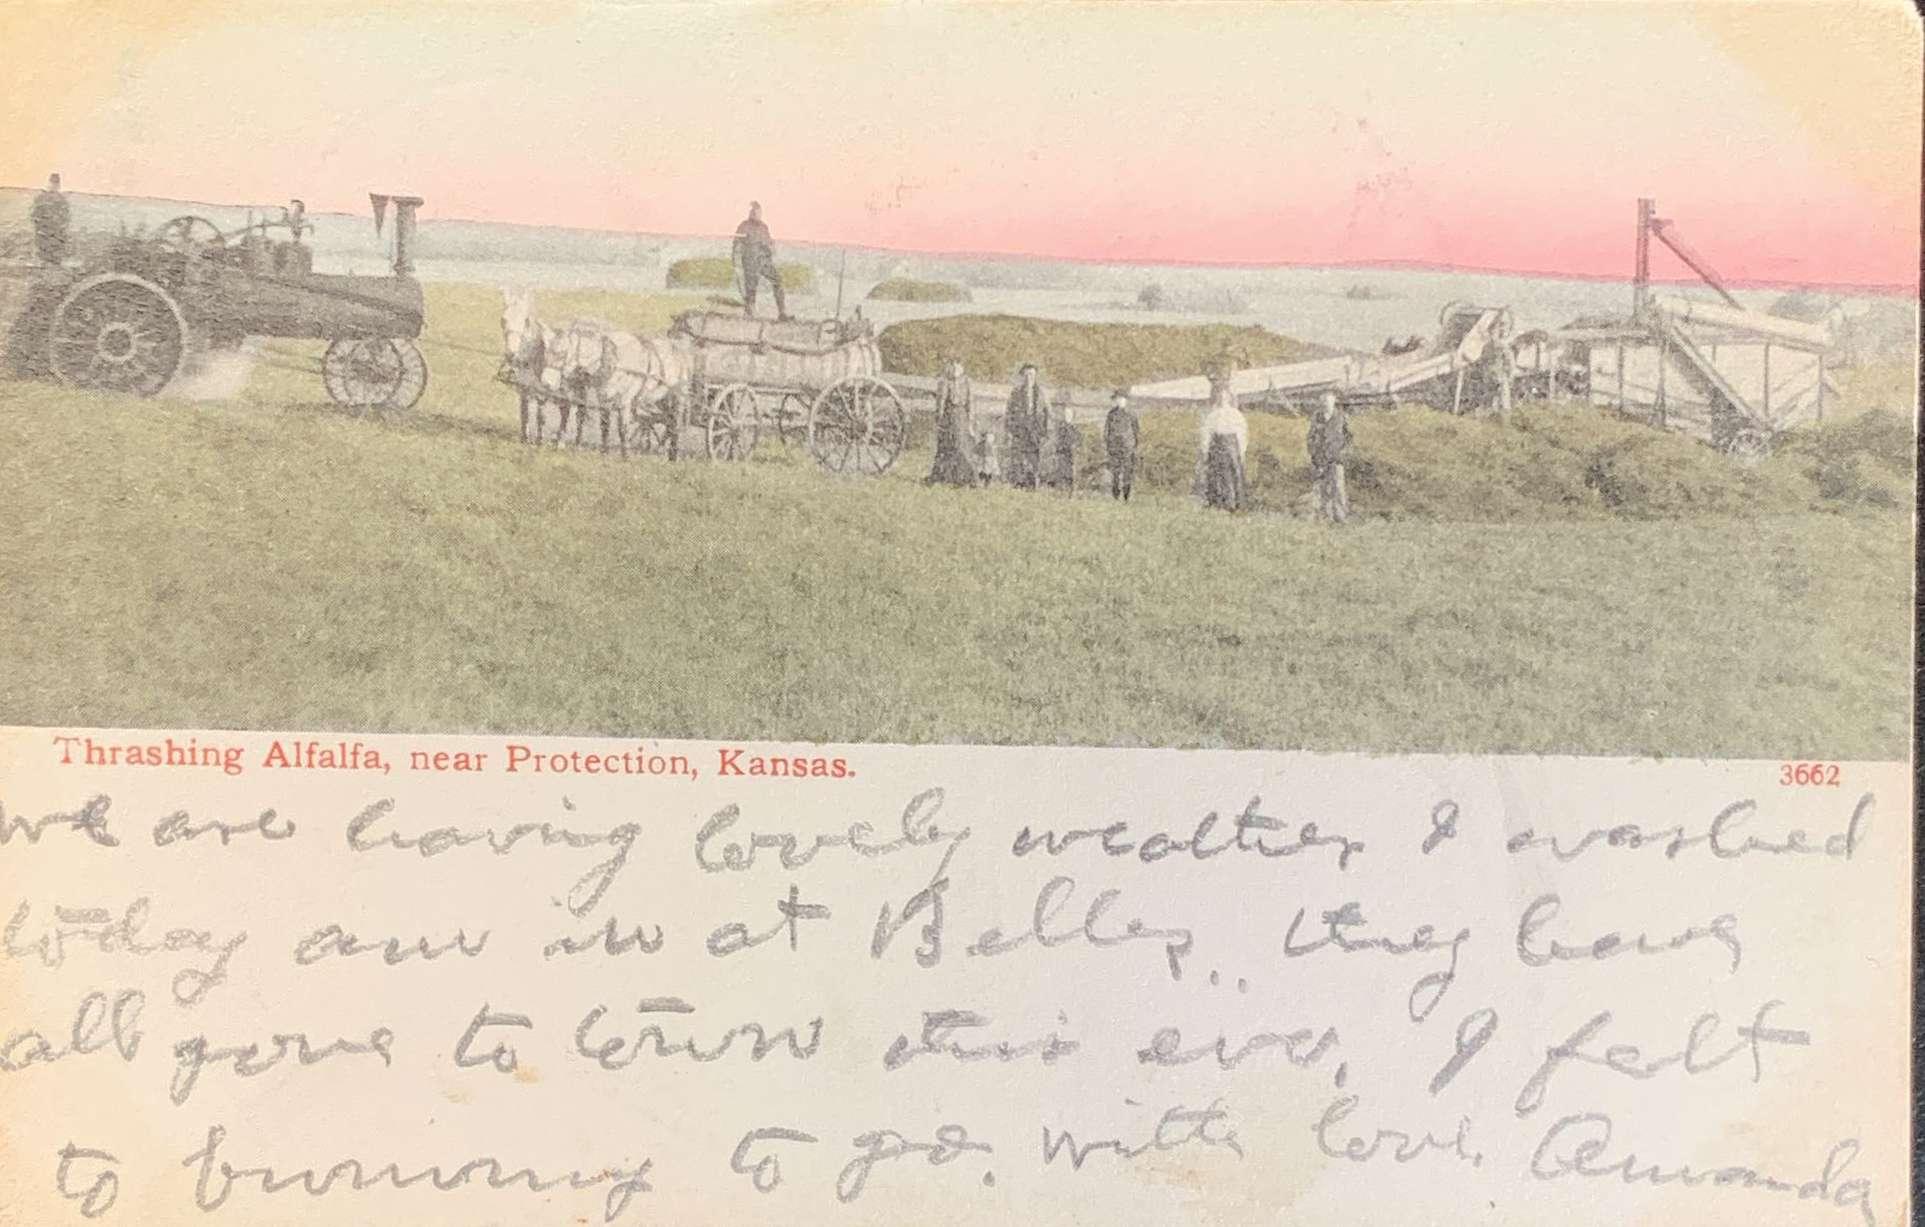 Thrashing Alfalfa, near Protection, Kansas.
3662
we are having lovely weather I washed
today am in at Belles.. they have
all gone to town this eve, I felt
to bummy to go. with love Amanda